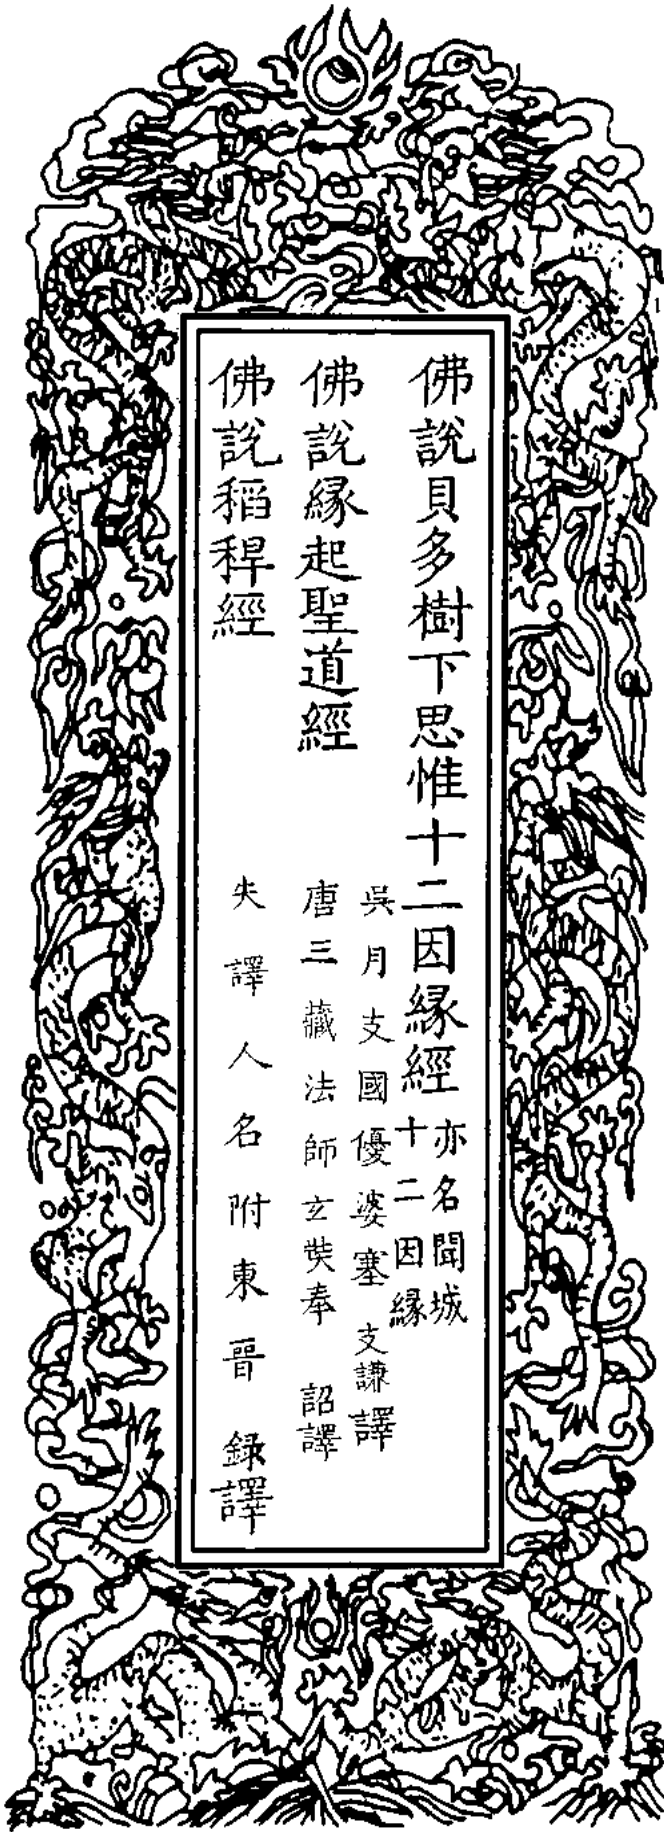 佛說貝多樹下思惟十二因緣經
亦名聞城
十二因緣
吳月支國優婆塞支謙譯
佛說緣起聖道經
唐三藏法師玄奘奉 詔譯
佛說稻稈經
失譯人名附東晉錄譯